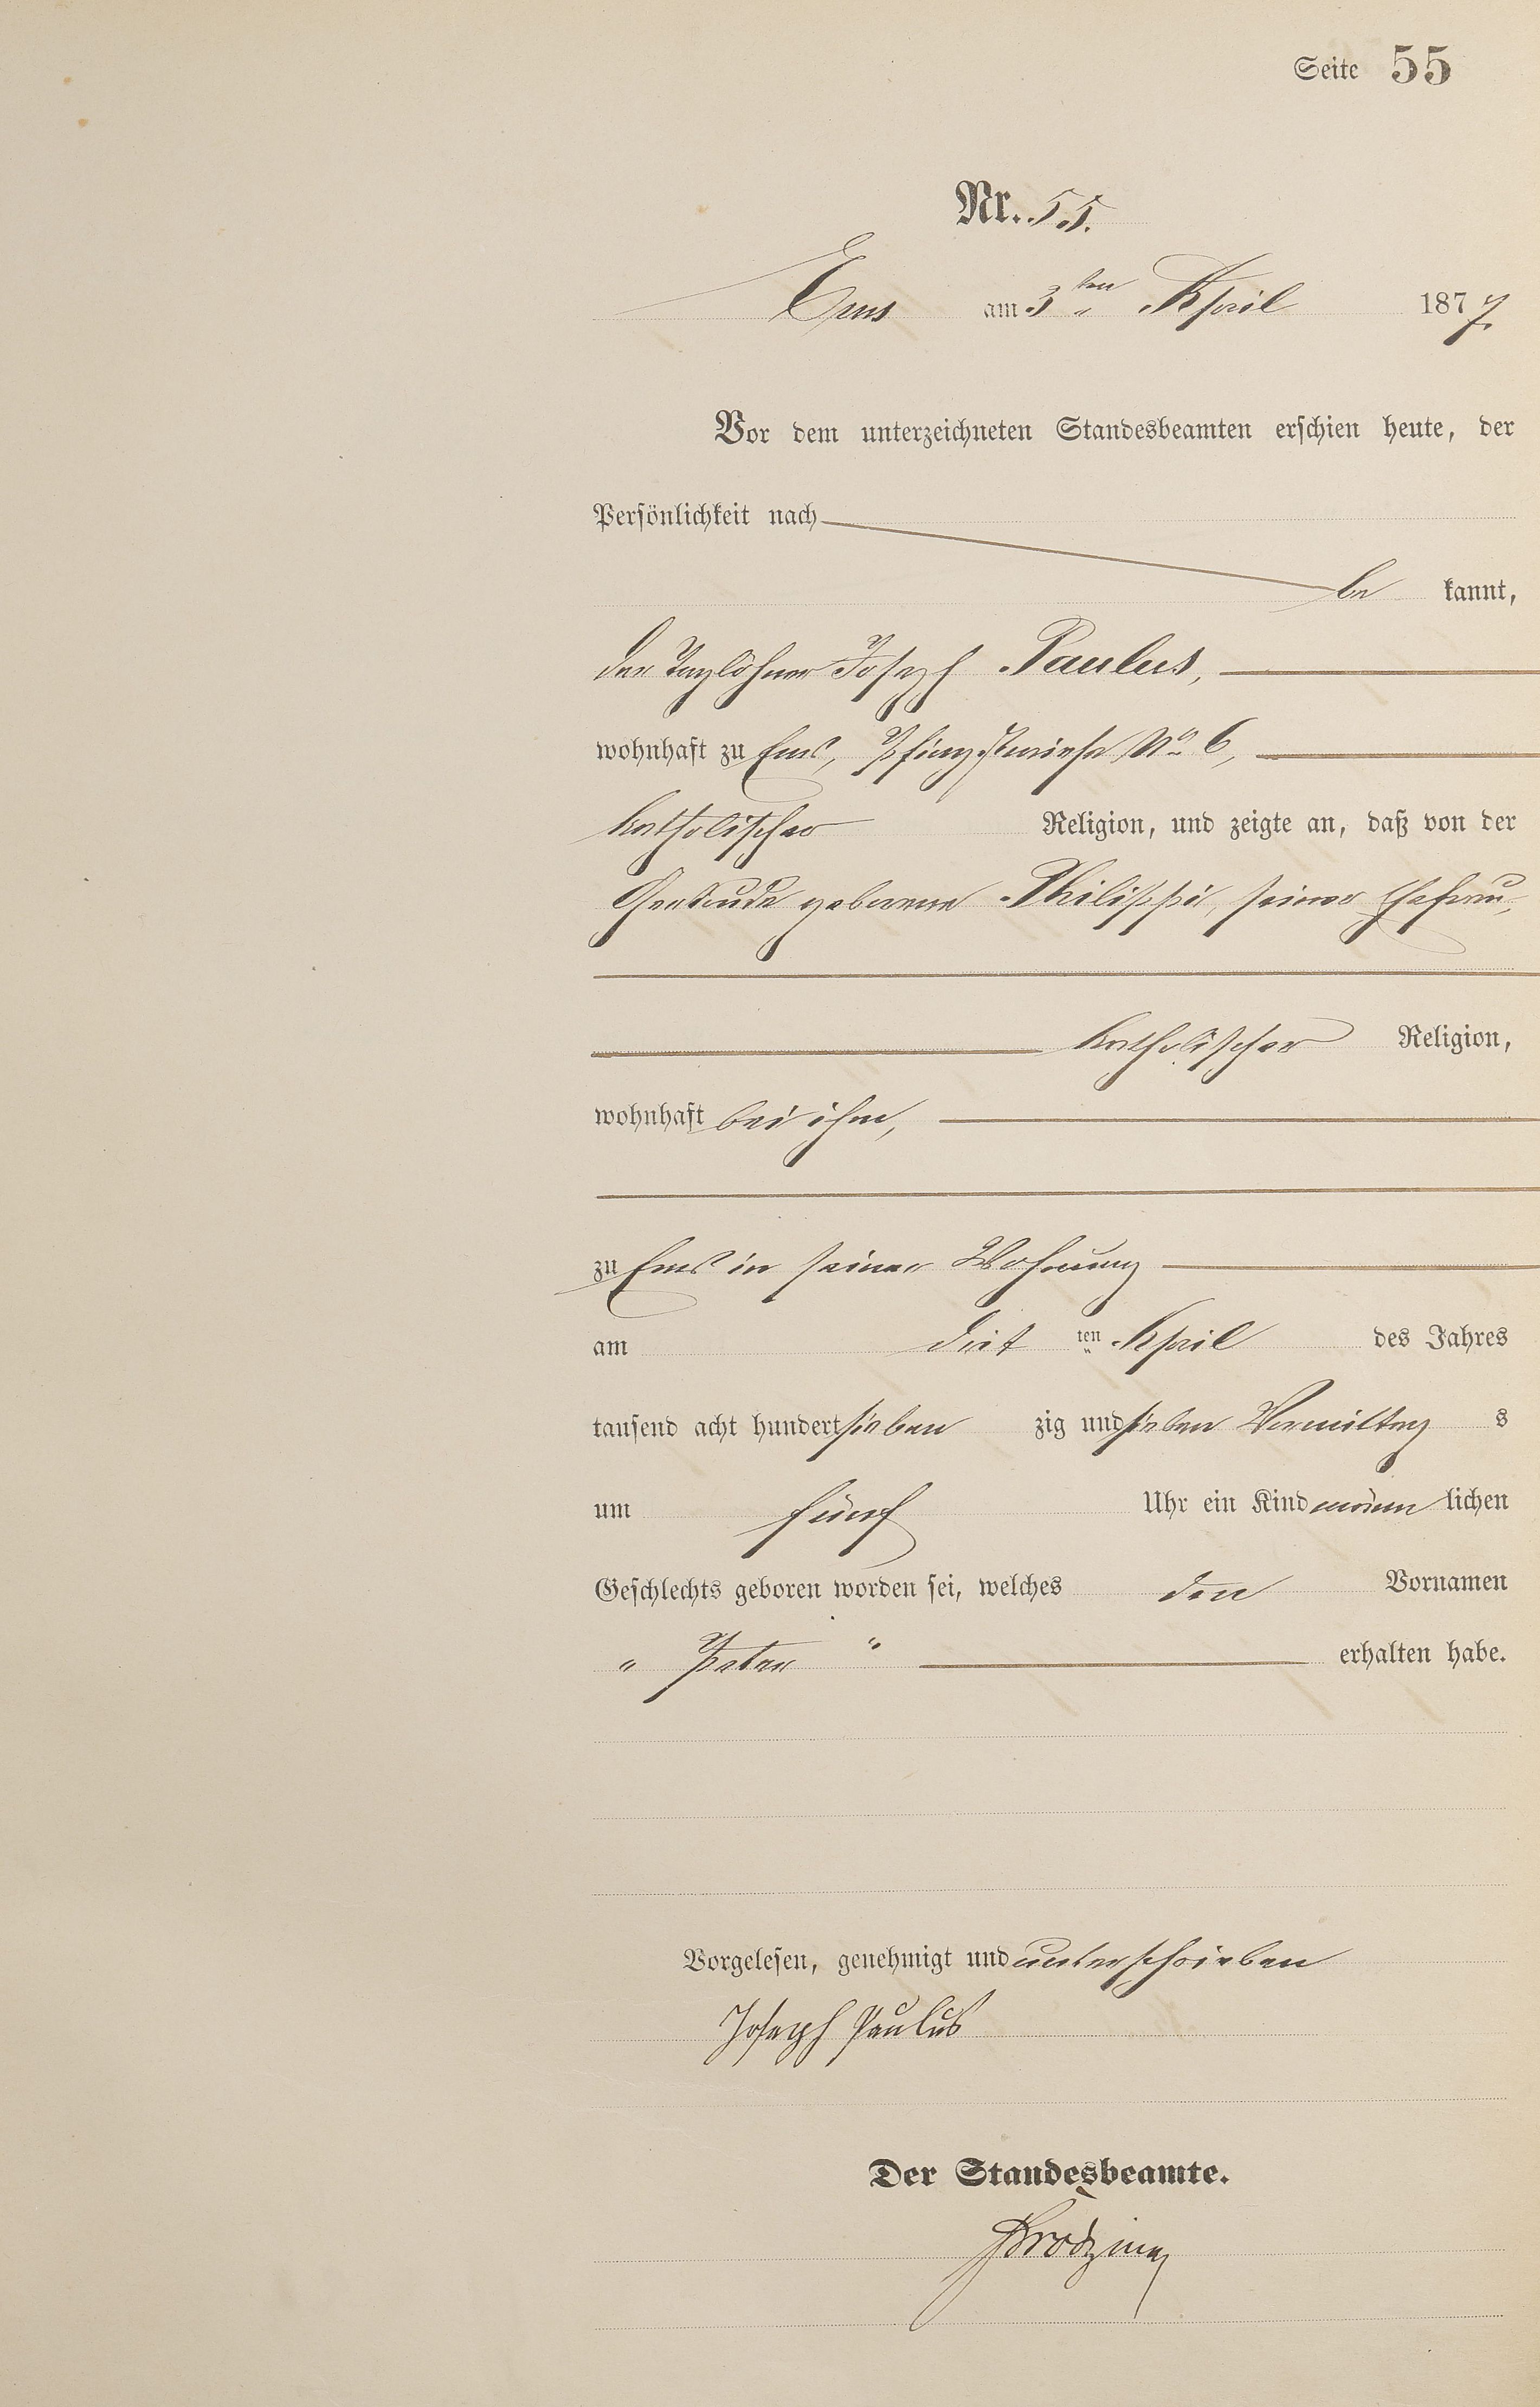 Seite 55
Nr. 55.
Ems am 3ten April 1877.
Vor dem unterzeichneten Standesbeamten erschien heute, der
Persönlichkeit nach
be kannt,
der Taglöhner Joseph Paulus,
wohnhaft zu Ems, Pfingstwiese No 6,
katholischer Religion, und zeigte an, daß von der
Gertrude geborene Philippi, seiner Ehefrau,
katholischer Religion,
wohnhaft bei ihm,
zu Ems in seiner Wohnung
am drit ten April des Jahres
tausend acht hundert sieben zig und sieben Vormittag s
um fünf Uhr ein Kind männ lichen
Geschlechts geboren worden sei, welches den Vornamen
„ Peter “ erhalten habe.
Vorgelesen, genehmigt und unterschrieben
Joseph Paulus
Der Standesbeamte.